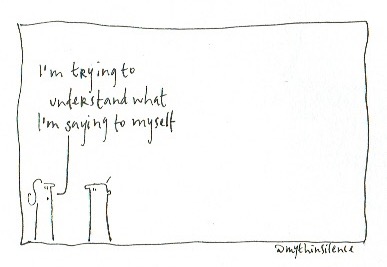 I'm trying to
understand what
I'm saying to myself
@mythinsilence